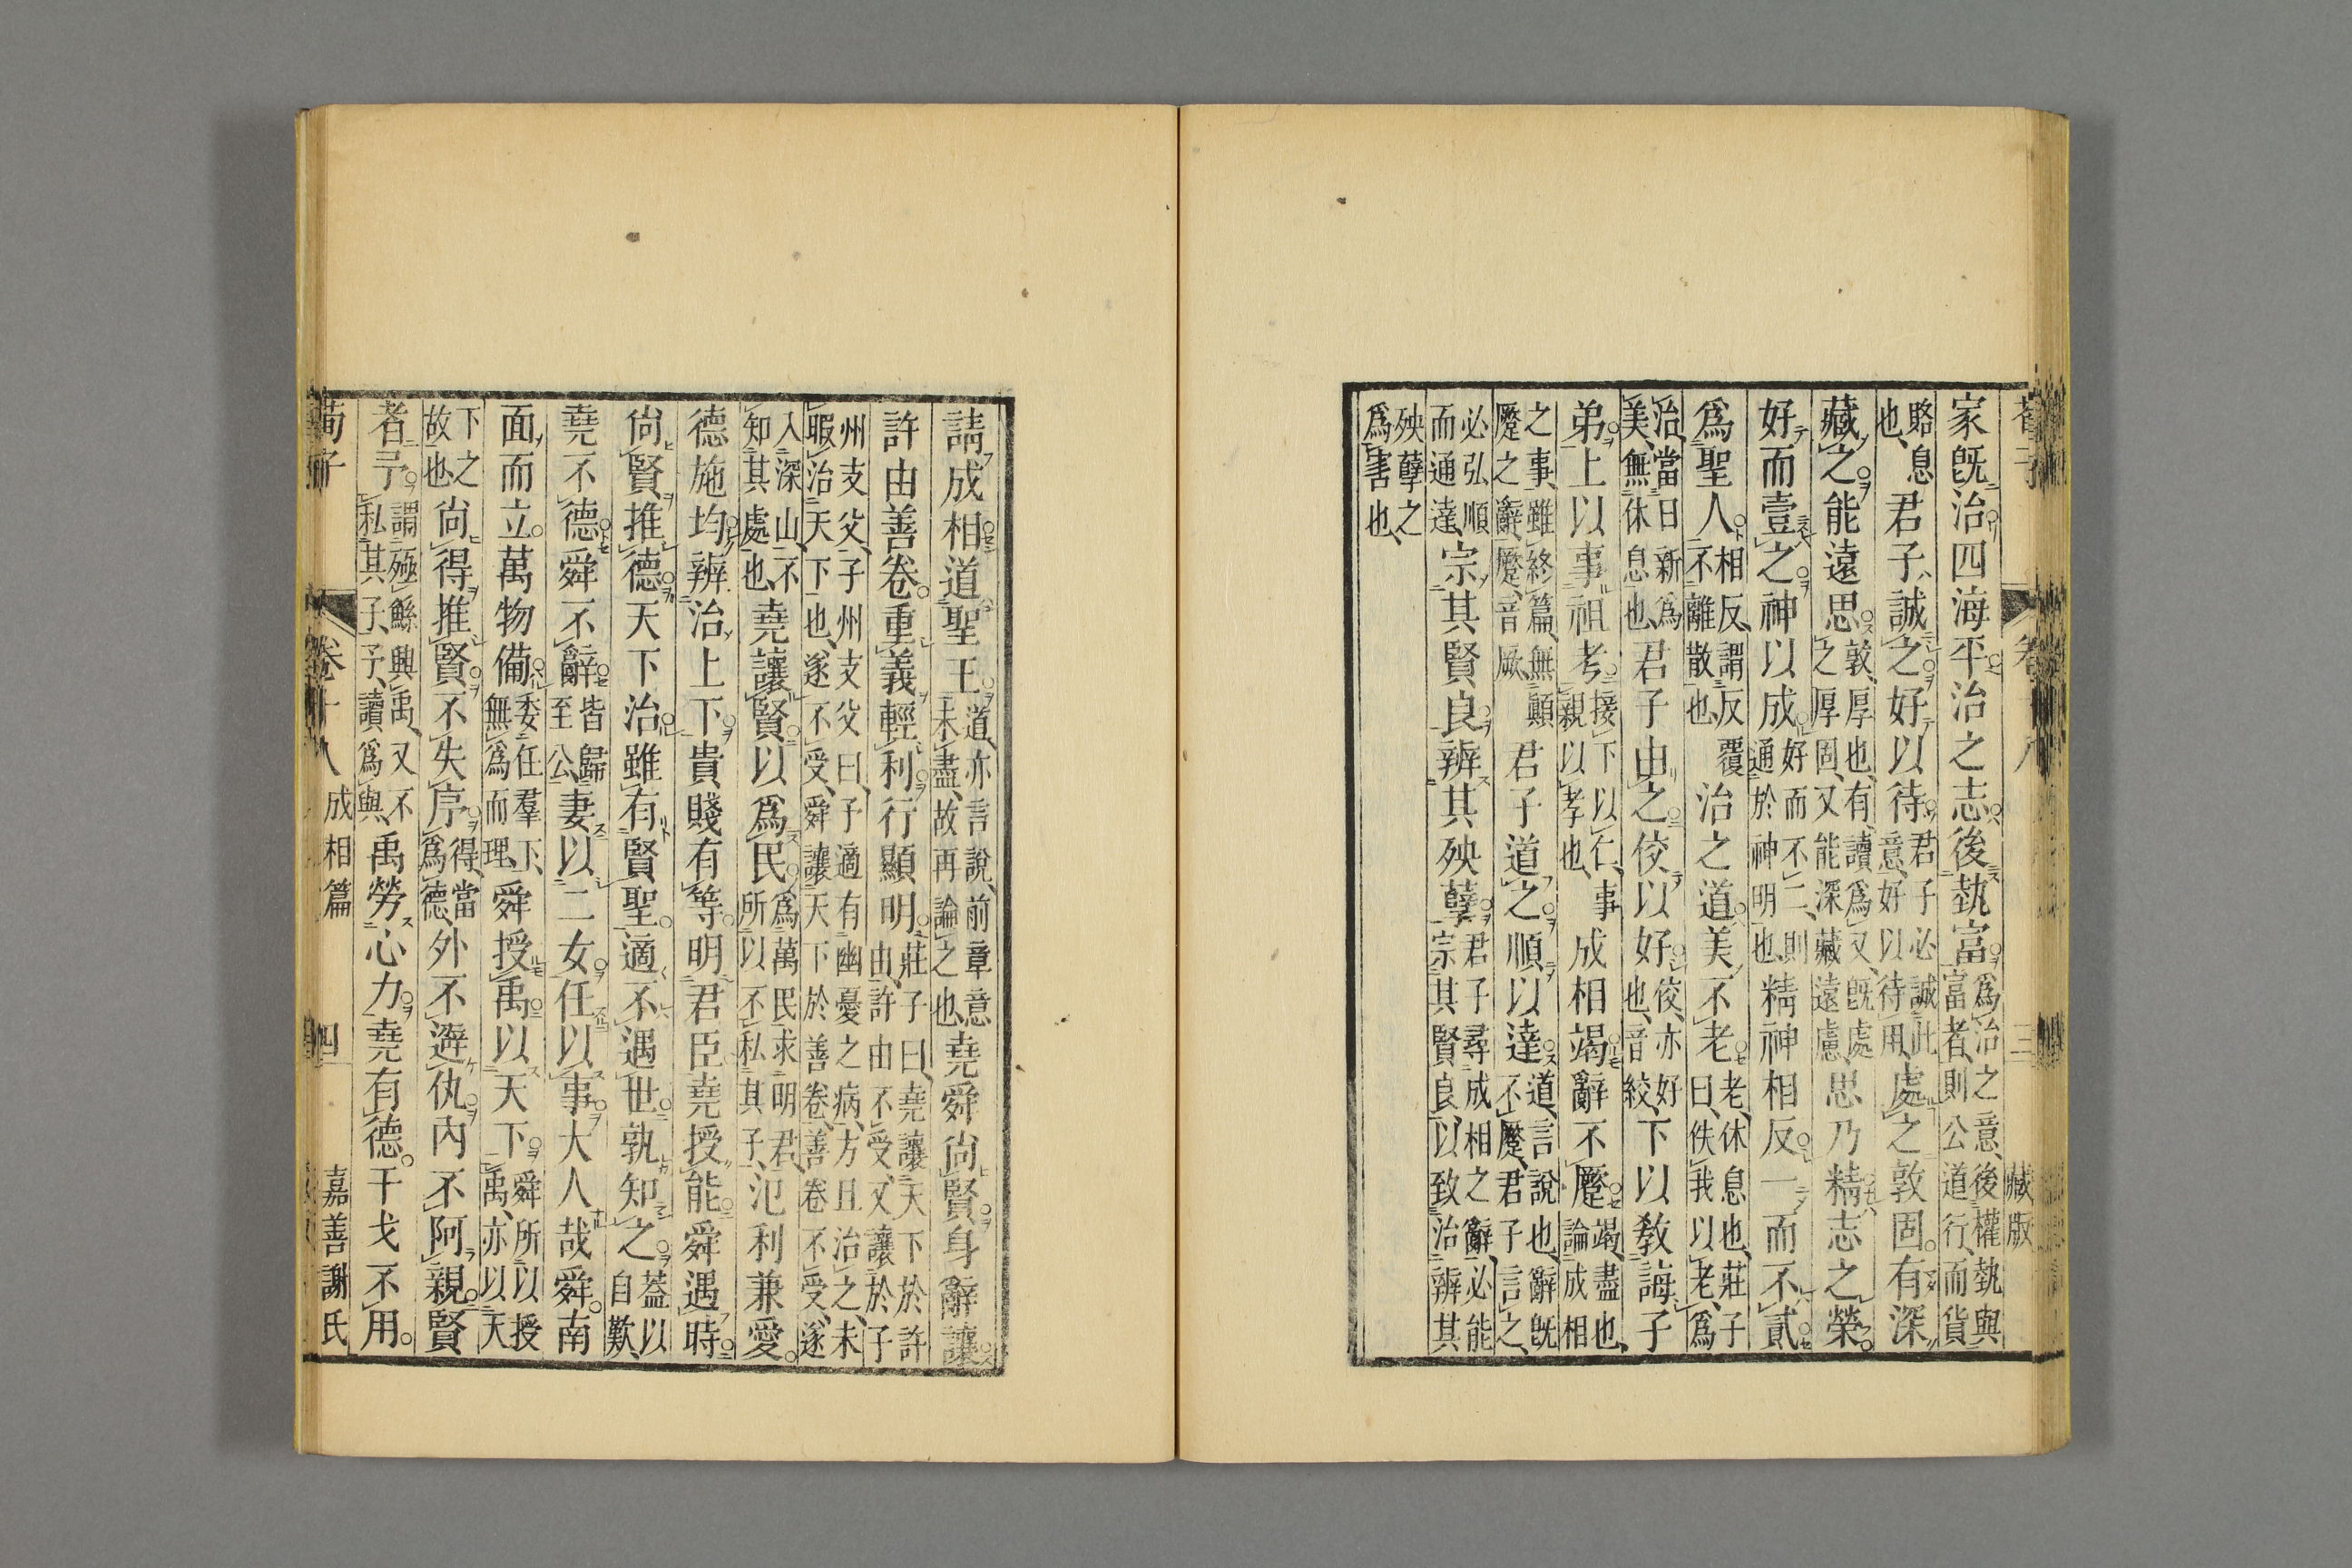 藏版
家旣治四海平治之志後埶富爲治之意後權埶與富者則公道行而貨
賂息也君子誠之好以待君子必誠此意好以待用處之敦固有深
藏之能遠思敦厚也有讀爲又旣處之厚固又能深藏遠慮思乃精志之榮
好而壹之神以成好而不二則通於神明也精神相反一而不貳
爲聖人相反謂反覆不離散也治之道美不老老休息也莊子曰佚我以老爲
治當日新爲美無休息也君子由之佼以好佼亦好也音絞下以敎誨子
弟上以事祖考接下以仁事親以孝也成相竭辭不蹷竭盡也論成相
之事雖終篇無顚蹷之辭蹷音厥君子道之順以達道言說也辭旣不蹷君子言之
必弘順而通達宗其賢良辨其殃孽君子尋成相之辭必能宗其賢良以致治辨其
殃孽之爲害也
請成相道聖王道亦言說前章意未盡故再論之也堯舜尙賢身辭讓
許由善卷重義輕利行顯明莊子曰堯讓天下於許由許由不受又讓於子
州支父子州支父曰予適有幽憂之病方且治之未暇治天下也遂不受舜讓天下於善卷善卷不受遂
入深山不知其處也堯讓賢以爲民爲萬民求明君所以不私其子氾利兼愛
德施均辨治上下貴賤有等明君臣堯授能舜遇時
尙賢推德天下治雖有賢聖適不遇世孰知之蓋以自歎
堯不德舜不辭皆歸至公妻以二女任以事大人哉舜南
面而立萬物備委任羣下無爲而理舜授禹以天下舜所以授禹亦以天
下之故也尙得推賢不失序得當爲德外不避仇內不阿親賢
者予謂殛鯀興禹又不私其子予讀爲與禹勞心力堯有德干戈不用
荀子 卷十八 成相篇 四 嘉善謝氏